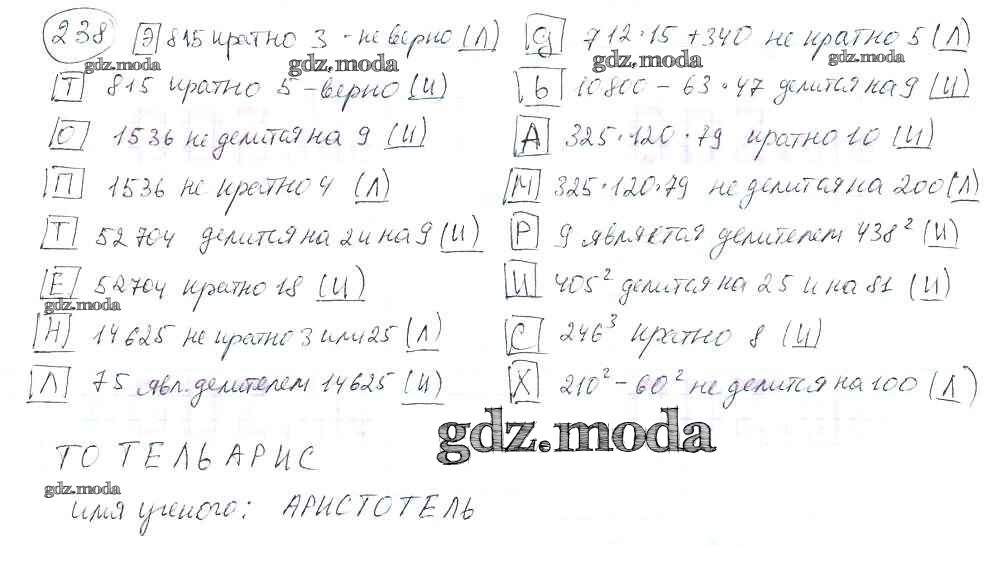 238 Э 815 кратно 3 - неверно (Л)
Т 815 кратно 5 - верно (И)
О 1536 не делится на 9 (И)
П 1536 не кратно 4 (Л)
Т 52704 делится на 2 и на 9 (И)
Е 52704 кратно 18 (И)
Н 14625 не кратно 3 или 25 (Л)
Л 75 явл. делителем 14625 (И)
Д 712·15 + 340 не кратно 5 (Л)
Ь 10800 - 63·47 делится на 9 (И)
А 325·120·79 кратно 10 (И)
М 325·120·79 не делится на 200 (Л)
Р 9 является делителем 438² (И)
И 405² делится на 25 и на 81 (И)
С 246³ кратно 8 (И)
Х 210² - 60² не делится на 100 (Л)
ТО ТЕЛЬ АРИС
имя ученого: АРИСТОТЕЛЬ
gdz.moda
gdz.moda
gdz.moda
gdz.moda
gdz.moda
gdz.moda